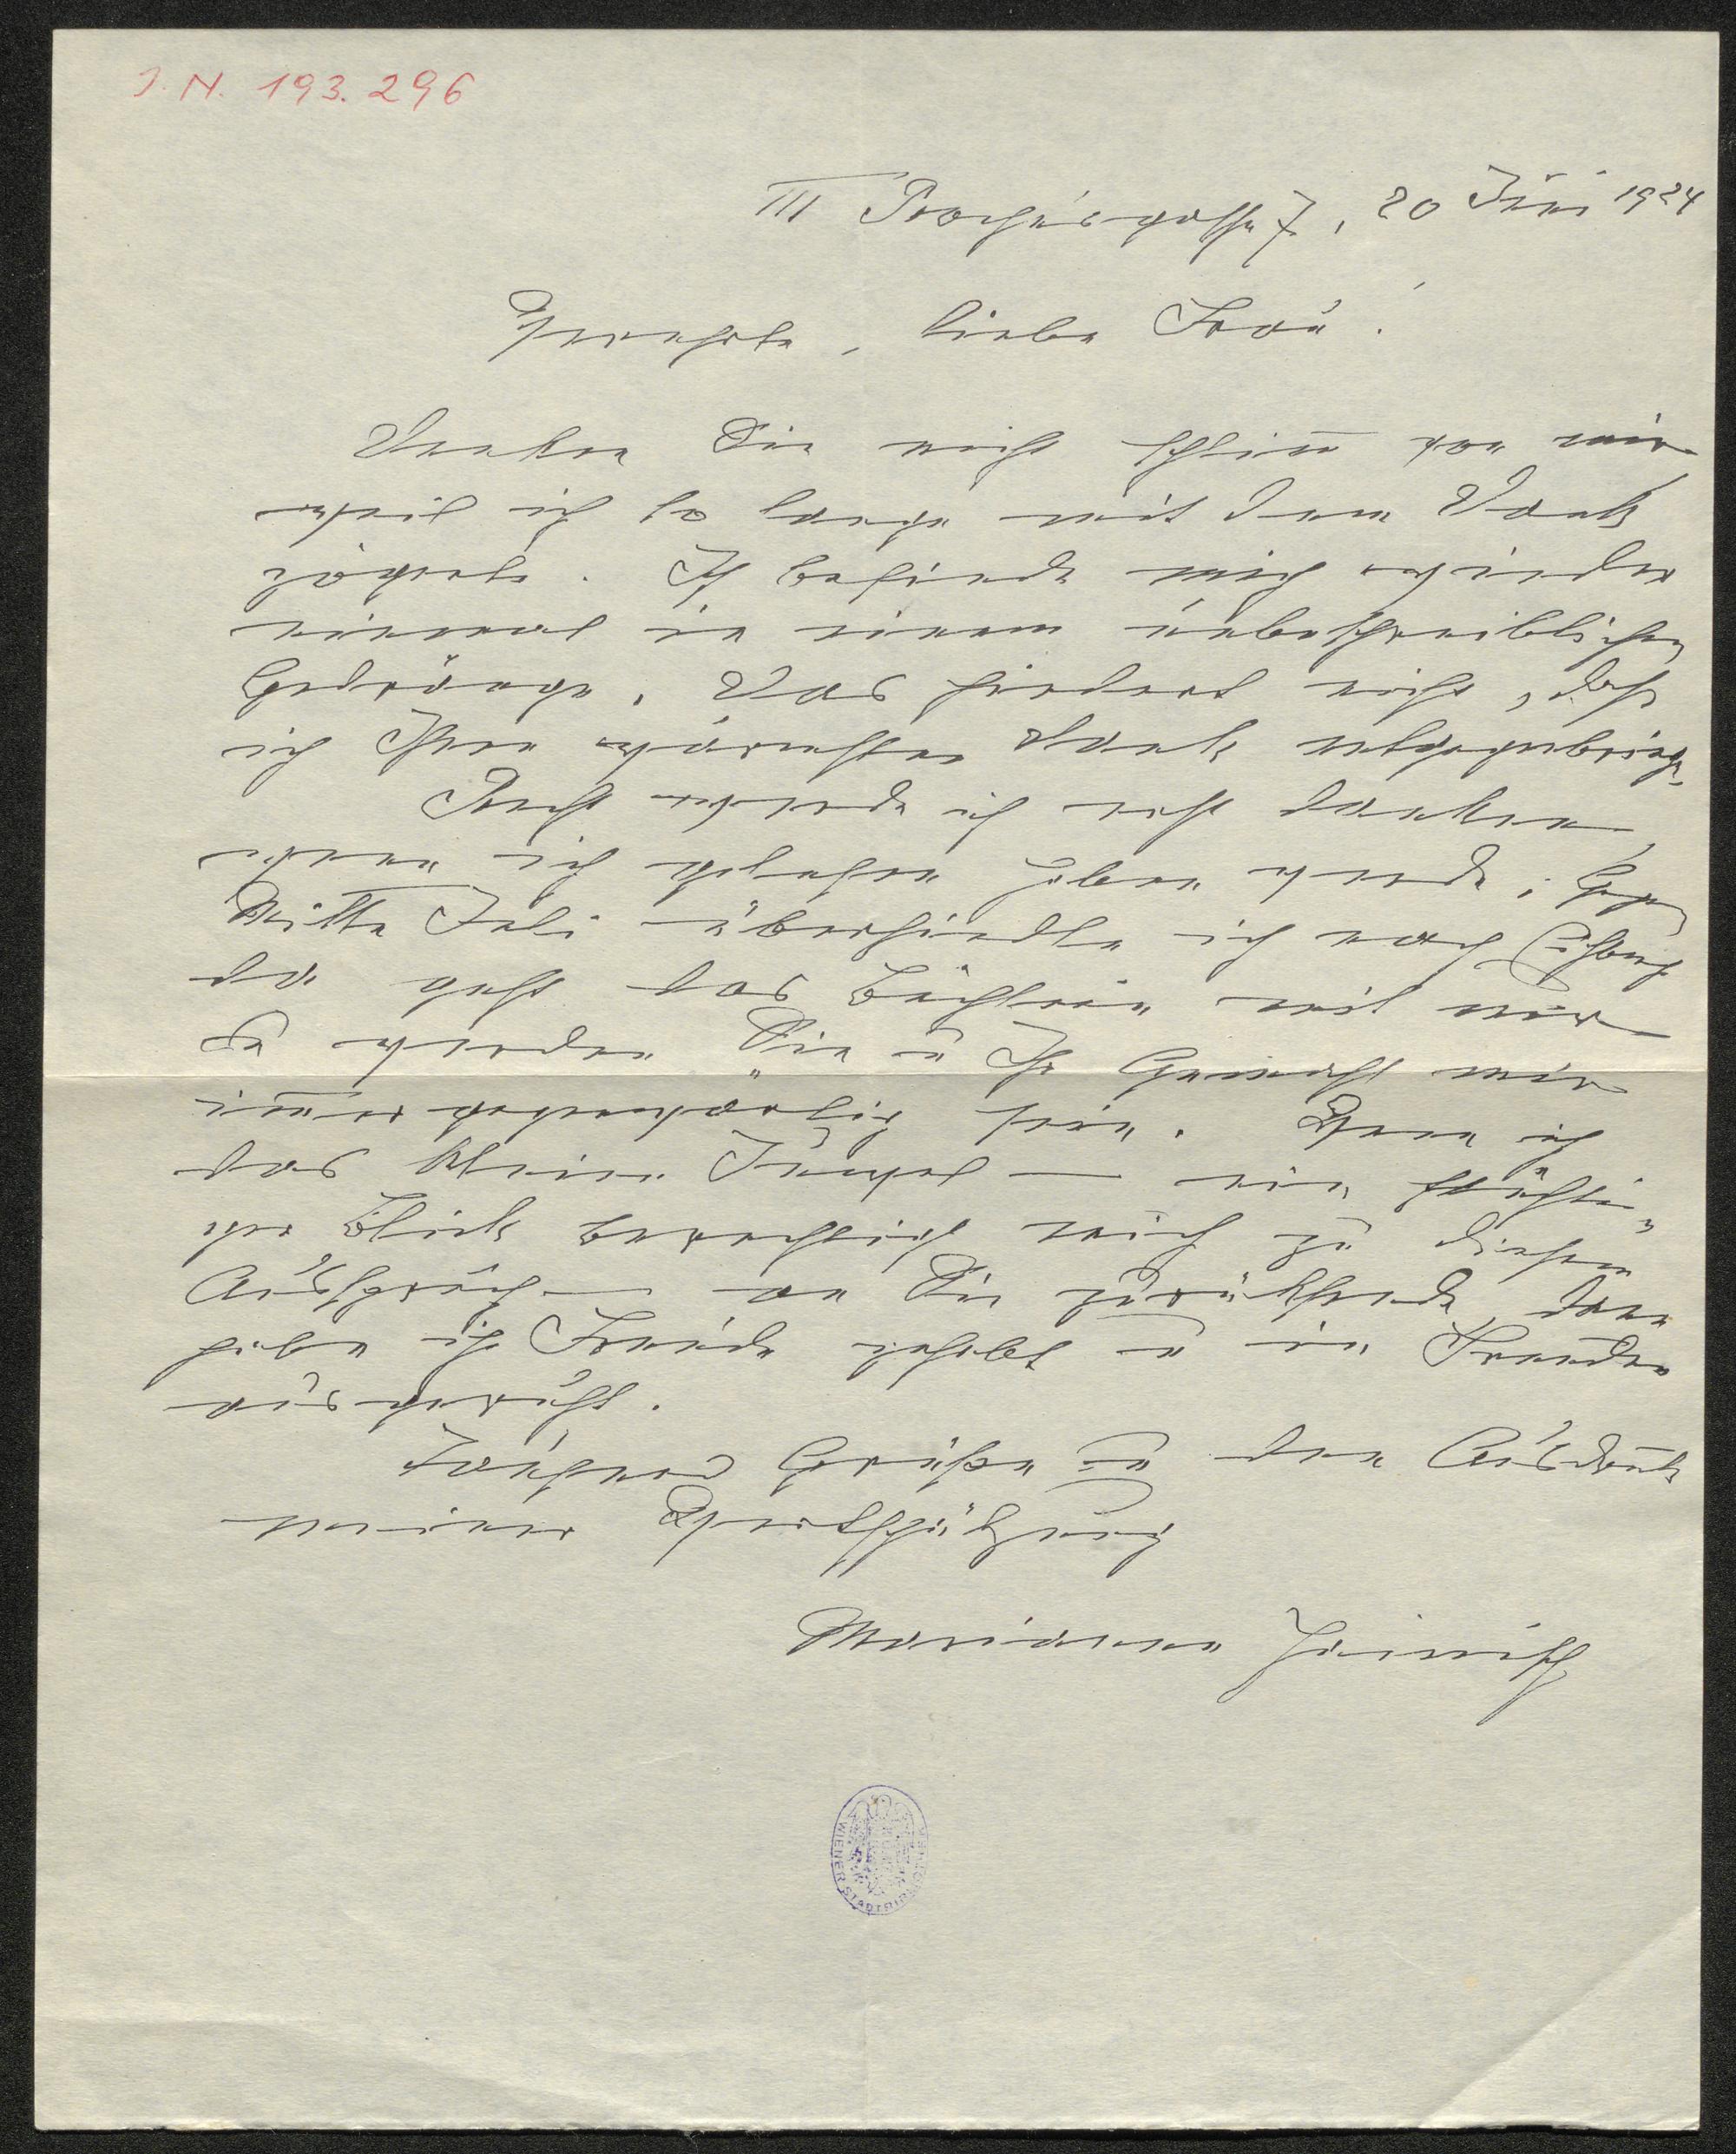 J. N. 193.296
III Rochusgasse 7, 20 Juni 1924
Verehrte, liebe Frau!
Denken Sie nicht schlim̄ von mir
weil ich so lange mit dem Dank
zögerte. Ich befinde mich wieder
einmal in einem unbeschreiblichen
Gedränge. Das hindert nicht, daß
ich Ihnen wärmsten Dank entgegenbringe.
Recht werde ich erst danken,
wenn ich gelesen haben werde; Gegen
Mitte Juli übersiedle ich nach
da geht das Büchlein mit mir
da werden Sie u Ihr Gemahl mir
im̄er gegenwärtig sein. Wenn ich
das kleine Juwel – ein flüchti-
ger Blick berechtigt mich zu diesem
Ausspruch – an Sie zurücksende, dann
habe ich Freude gehabt u in Freuden
ausgeruht.
Tausend Grüße u den Ausdruck
meiner Wertschätzung
Marianne Hainisch
WIENER STADTBIBLIOTHEK